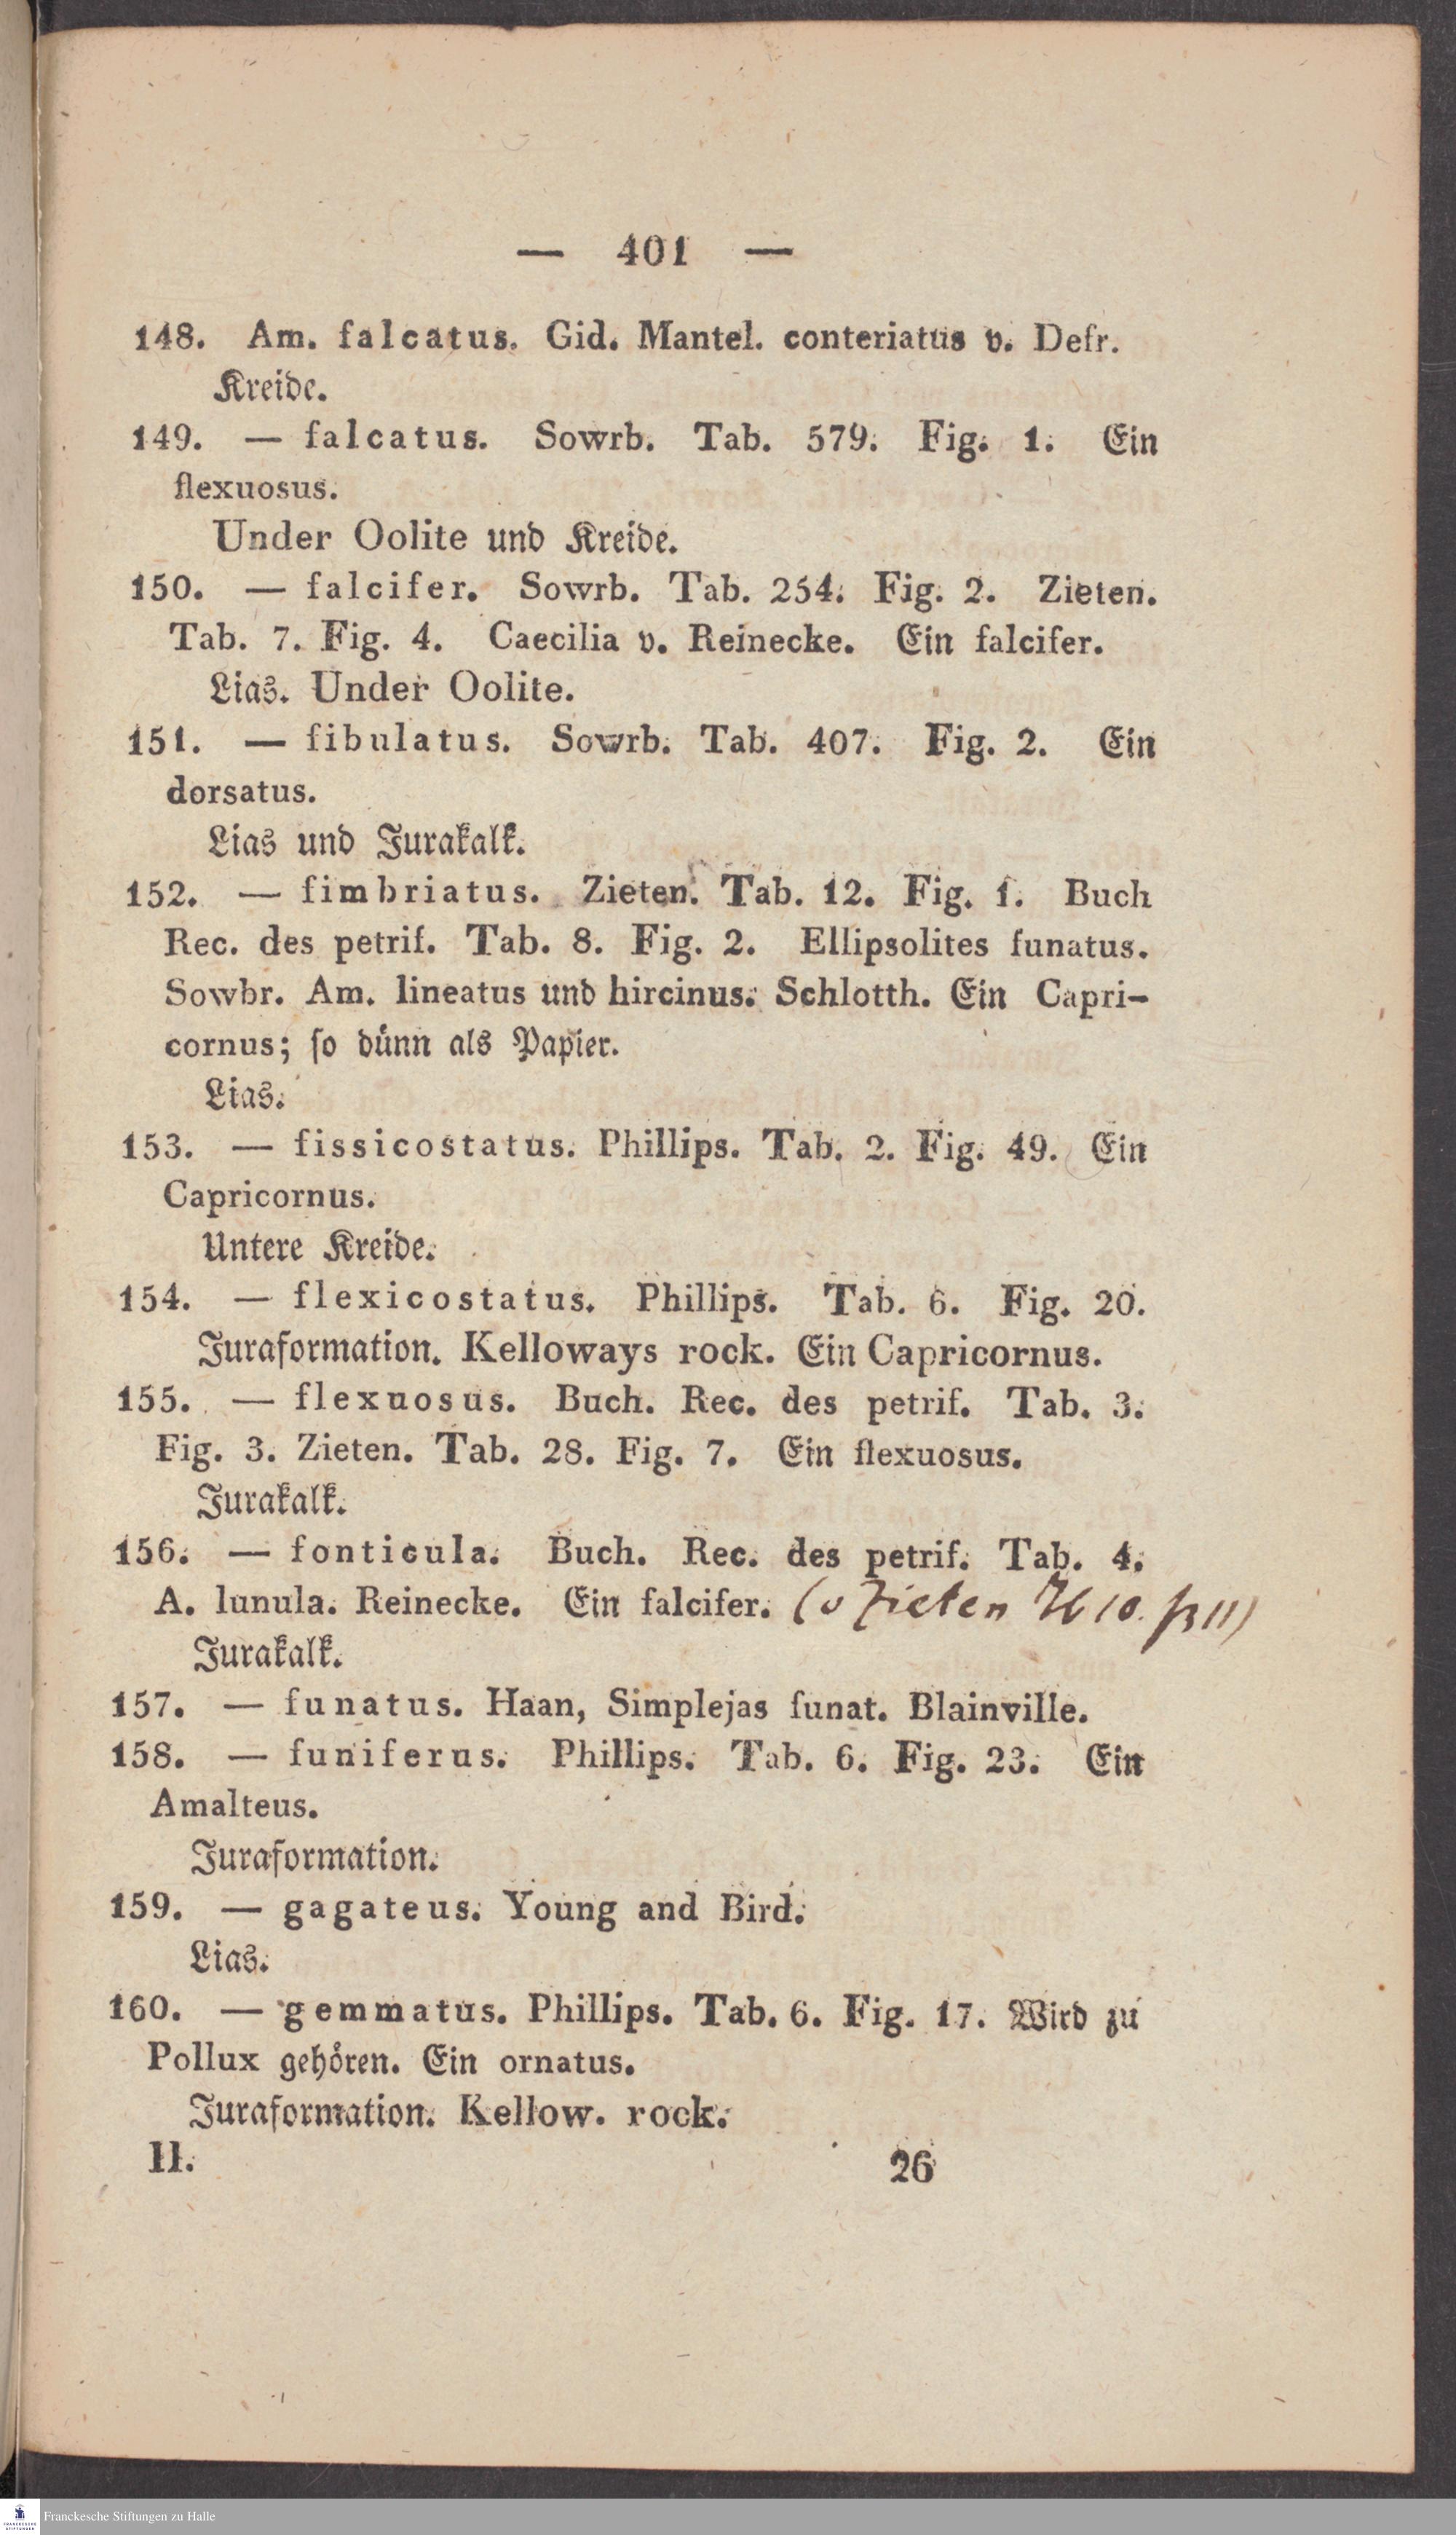 — 401 —
148. Am. falcatus. Gid. Mantel. conteriatus v. Defr.
Kreide.
149. — falcatus. Sowrb. Tab. 579. Fig. 1. Ein
flexuosus.
Under Oolite und Kreide.
150. — falcifer. Sowrb. Tab. 254. Fig. 2. Zieten.
Tab. 7. Fig. 4. Caecilia v. Reinecke. Ein falcifer.
Lias. Under Oolite.
151. — fibulatus. Sowrb. Tab. 407. Fig. 2. Ein
dorsatus.
Lias und Jurakalk.
152. — fimbriatus. Zieten. Tab. 12. Fig. 1. Buch
Rec. des petrif. Tab. 8. Fig. 2. Ellipsolites funatus.
Sowbr. Am. lineatus und hircinus. Schlotth. Ein Capri-
cornus; so dünn als Papier.
Lias.
153. — fissicostatus. Phillips. Tab. 2. Fig. 49. Ein
Capricornus.
Untere Kreide.
154. — flexicostatus. Phillips. Tab. 6. Fig. 20.
Juraformation. Kelloways rock. Ein Capricornus.
155. — flexuosus. Buch. Rec. des petrif. Tab. 3.
Fig. 3. Zieten. Tab. 28. Fig. 7. Ein flexuosus.
Jurakalk.
156. — fonticula. Buch. Rec. des petrif. Tab. 4.
A. lunula. Reinecke. Ein falcifer. (v Zieten 10. 11)
Jurakalk.
157. — funatus. Haan, Simplejas funat. Blainville.
158. — funiferus. Phillips. Tab. 6. Fig. 23. Ein
Amalteus.
Juraformation.
159. — gagateus. Young and Bird.
Lias.
160. — gemmatus. Phillips. Tab. 6. Fig. 17. Wird zu
Pollux gehören. Ein ornatus.
Juraformation. Kellow. rock.
II. 26
Franckesche Stiftungen zu Halle